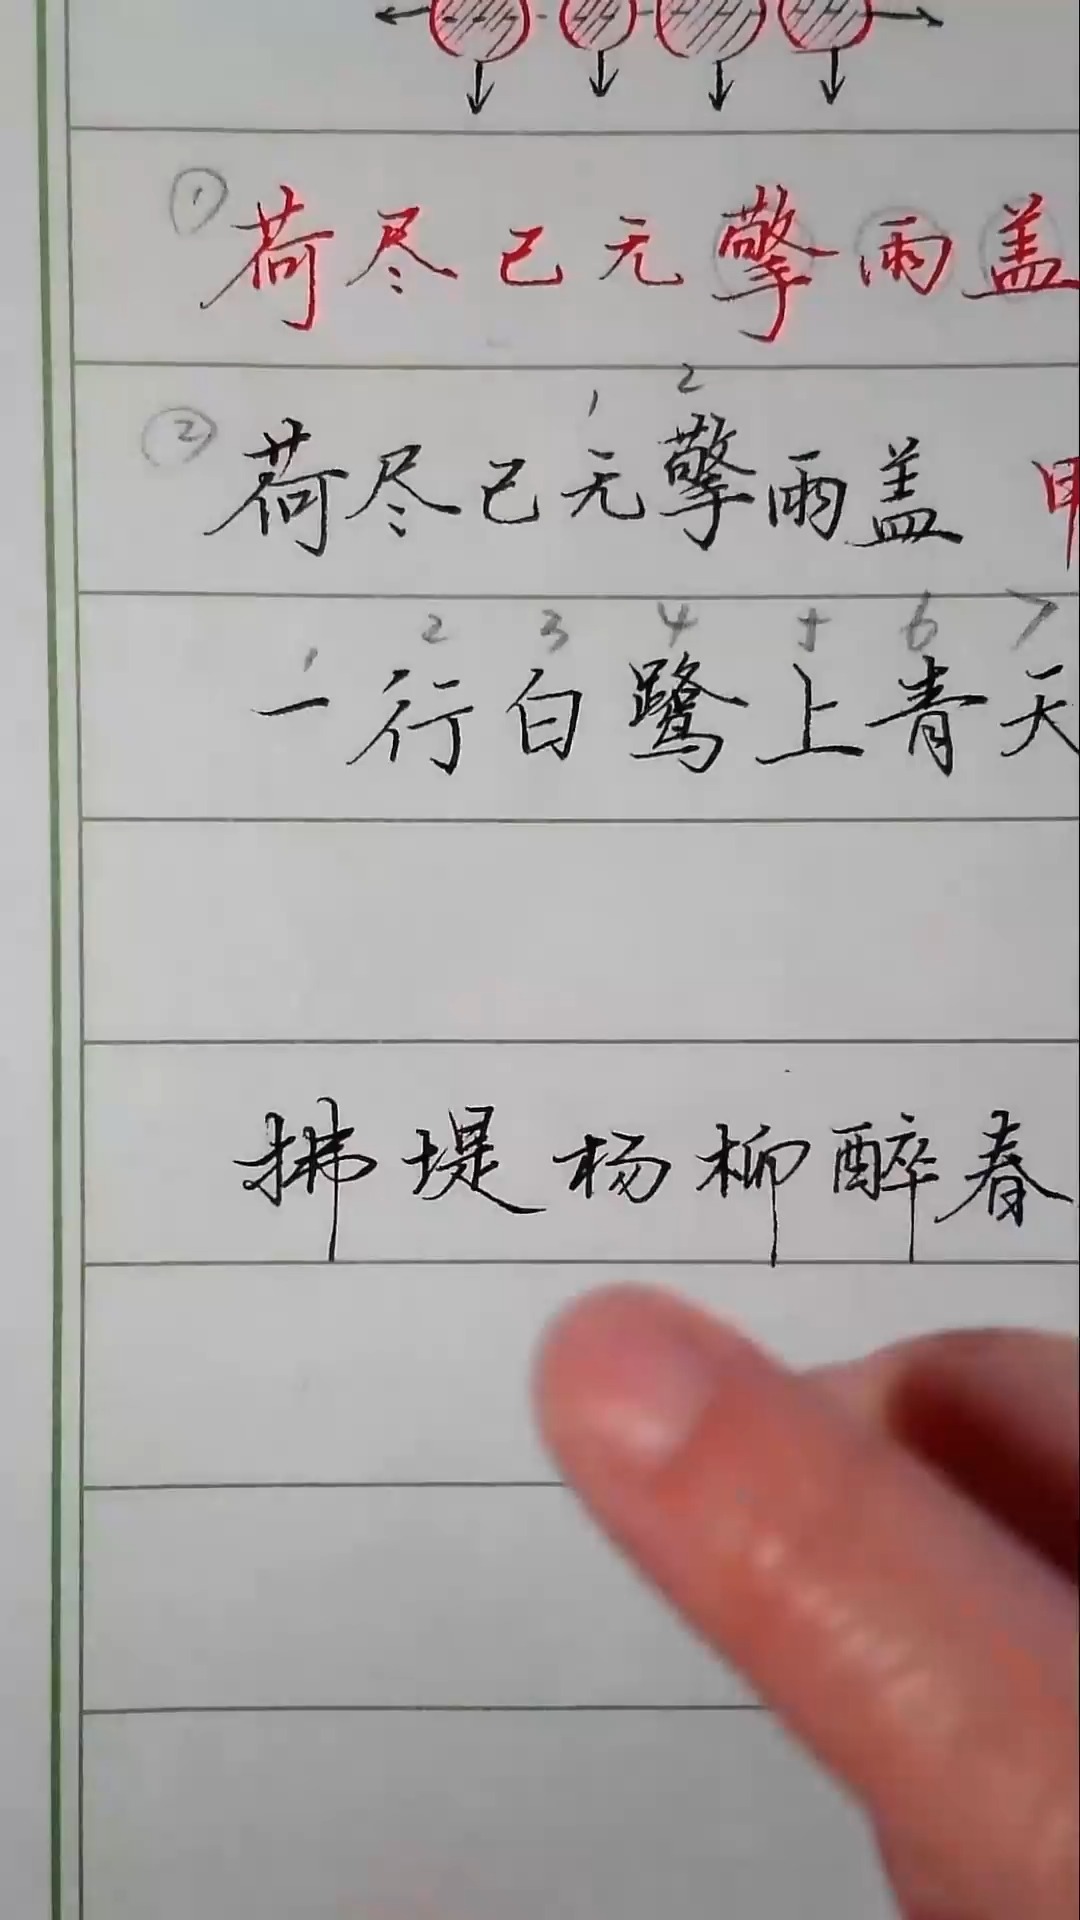 ① 荷尽已无擎雨盖
1 2
② 荷尽已无擎雨盖
1 2 3 4 5 6 7
一行白鹭上青天
拂堤杨柳醉春